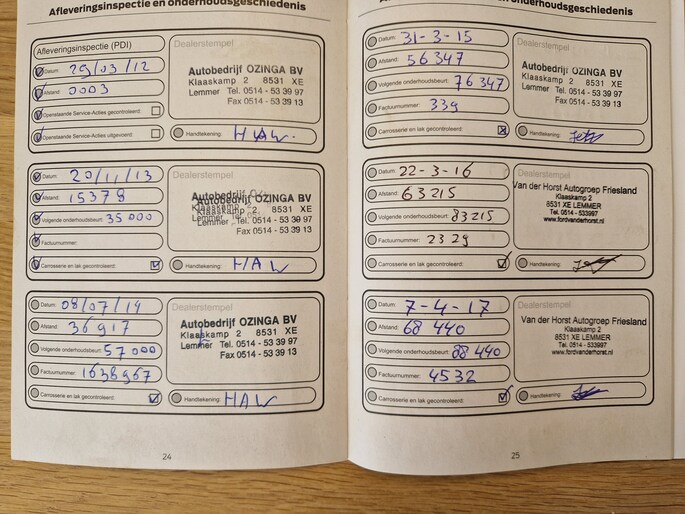 Afleveringsinspectie en onderhoudsgeschiedenis
Afleveringsinspectie (PDI)
Datum: 29/03/12
Afstand: 0003
Openstaande Service-Acties gecontroleerd:
Openstaande Service-Acties uitgevoerd:
Dealerstempel
Autobedrijf OZINGA BV
Klaaskamp 2 8531 XE
Lemmer Tel. 0514 - 53 39 97
Fax 0514 - 53 39 13
Handtekening: HAW.
Datum: 20/11/13
Afstand: 15378
Volgende onderhoudsbeurt: 35000
Factuurnummer:
Carrosserie en lak gecontroleerd:
Dealerstempel
Autobedrijf OZINGA BV
Klaaskamp 2 8531 XE
Lemmer Tel. 0514 - 53 39 97
Fax 0514 - 53 39 13
Handtekening: HAW
Datum: 08/07/14
Afstand: 36917
Volgende onderhoudsbeurt: 57000
Factuurnummer: 1638967
Carrosserie en lak gecontroleerd:
Dealerstempel
Autobedrijf OZINGA BV
Klaaskamp 2 8531 XE
Lemmer Tel. 0514 - 53 39 97
Fax 0514 - 53 39 13
Handtekening: HAW
24
onderhoudsgeschiedenis
Datum: 31-3-15
Afstand: 56347
Volgende onderhoudsbeurt: 76347
Factuurnummer: 339
Carrosserie en lak gecontroleerd:
Dealerstempel
Autobedrijf OZINGA BV
Klaaskamp 2 8531 XE
Lemmer Tel. 0514 - 53 39 97
Fax 0514 - 53 39 13
Handtekening:
Datum: 22-3-16
Afstand: 63215
Volgende onderhoudsbeurt: 83215
Factuurnummer: 2329
Carrosserie en lak gecontroleerd:
Dealerstempel
Van der Horst Autogroep Friesland
Klaaskamp 2
8531 XE LEMMER
Tel. 0514 - 533997
www.fordvanderhorst.nl
Handtekening:
Datum: 7-4-17
Afstand: 68440
Volgende onderhoudsbeurt: 88440
Factuurnummer: 4532
Carrosserie en lak gecontroleerd:
Dealerstempel
Van der Horst Autogroep Friesland
Klaaskamp 2
8531 XE LEMMER
Tel. 0514 - 533997
www.fordvanderhorst.nl
Handtekening:
25